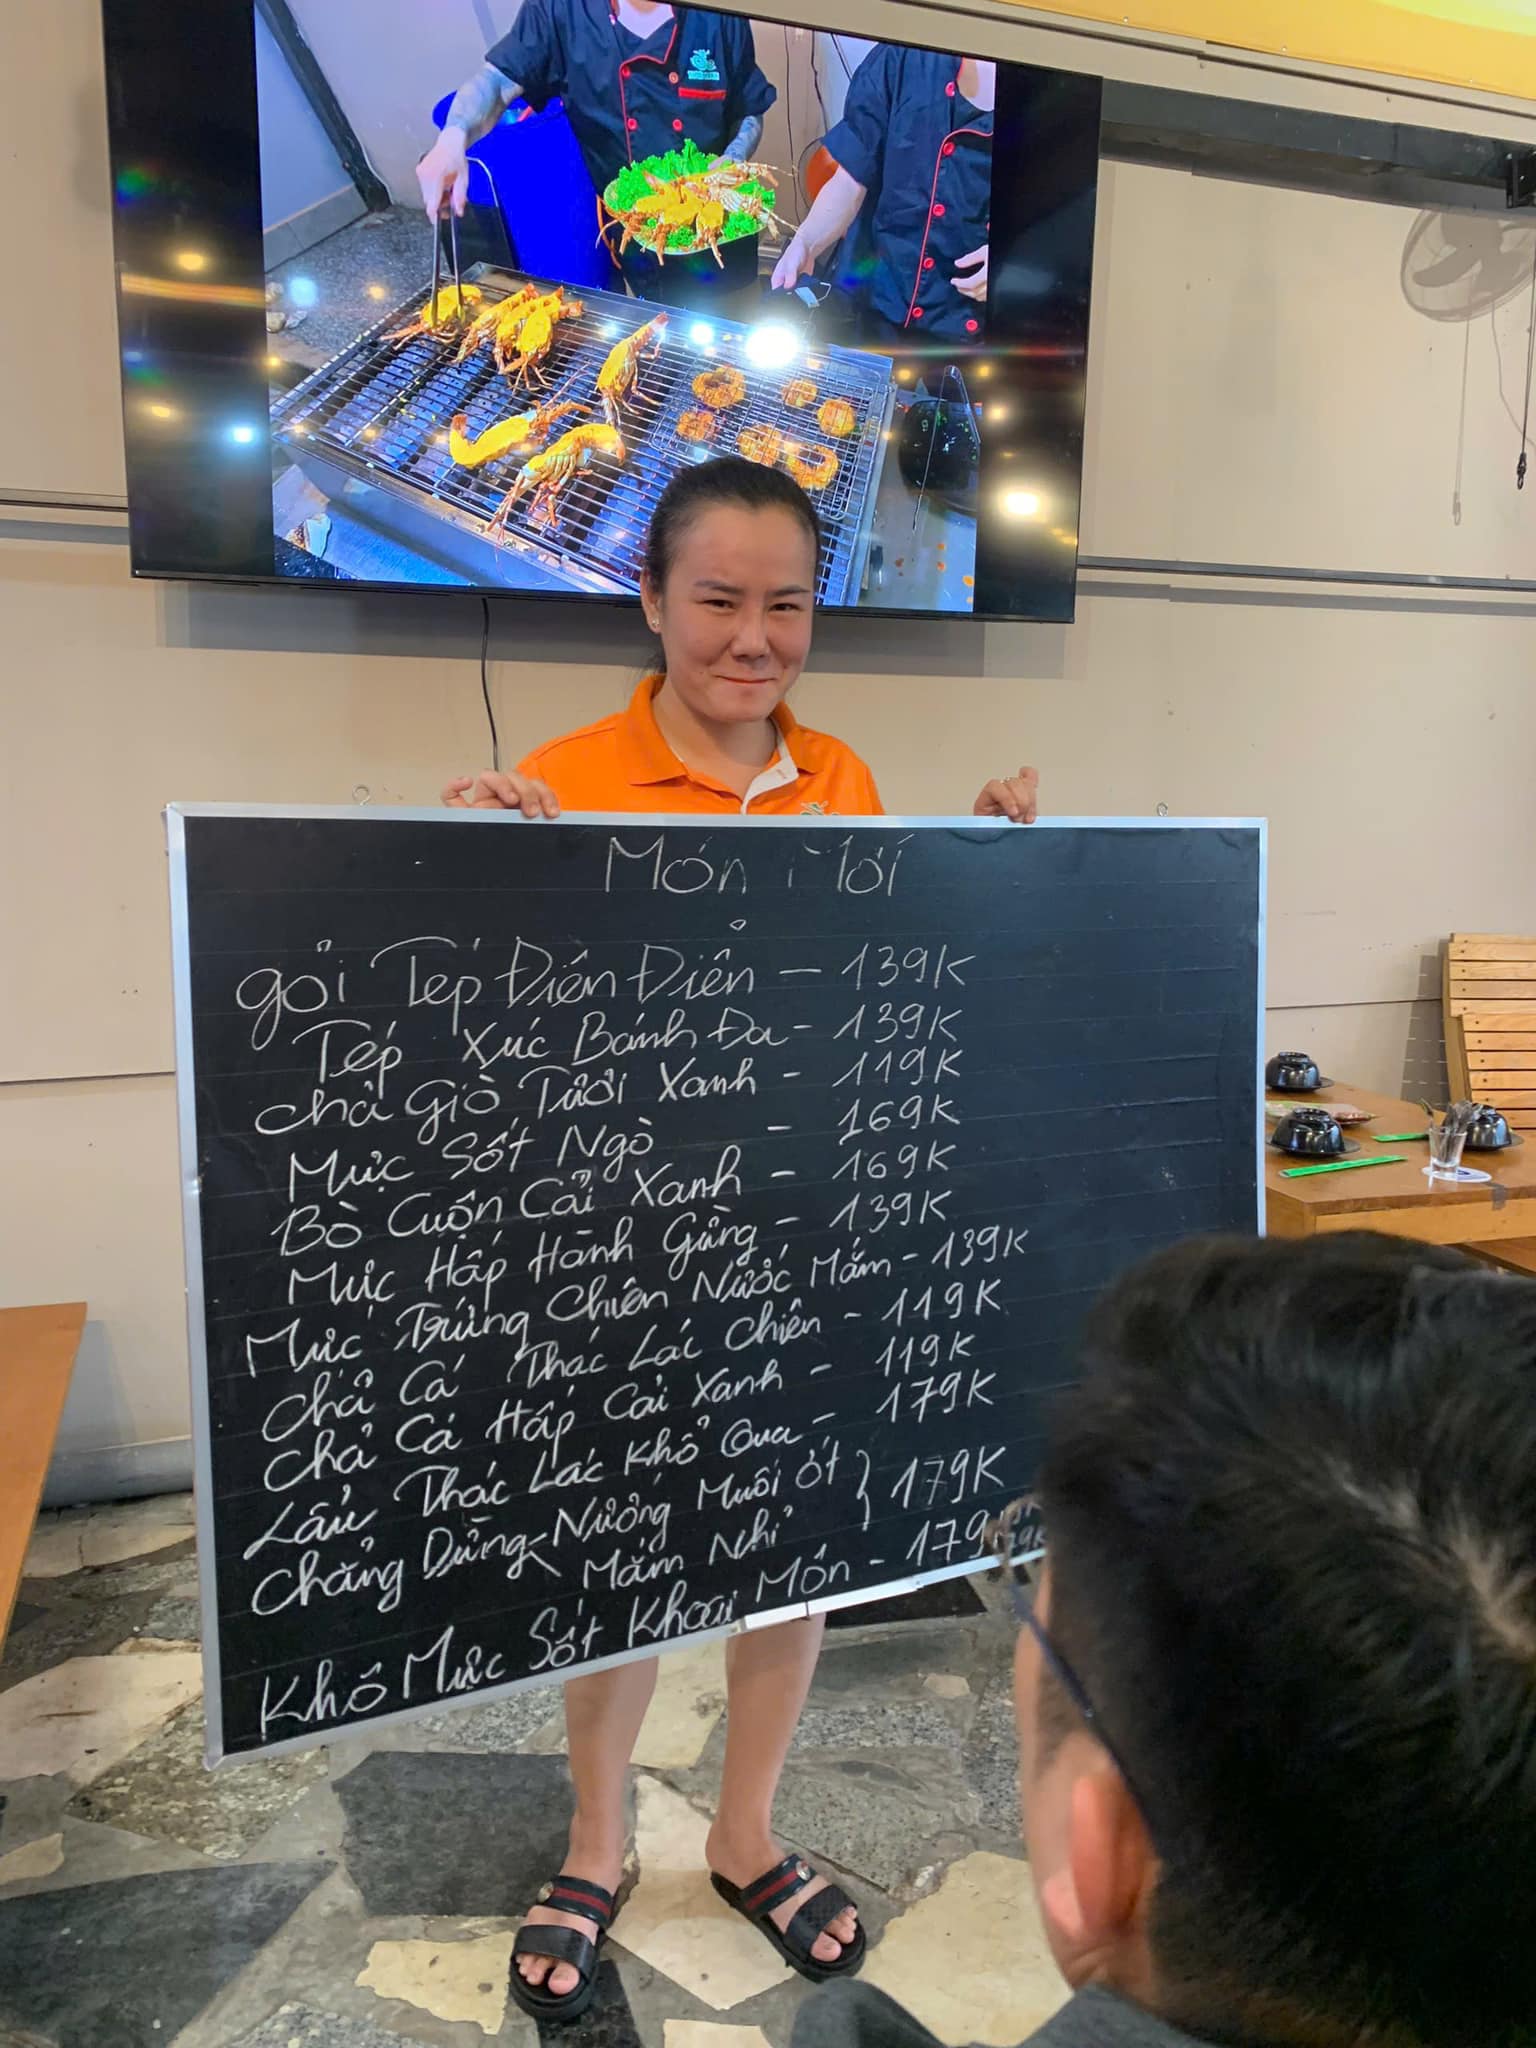 Món Mới
gỏi Tép Điên Điển - 139K
Tép Xúc Bánh Đa - 139K
chả giò Tươi Xanh - 119K
Mực Sốt Ngò - 169K
Bò Cuộn Cải Xanh - 169K
Mực Hấp Hành Gừng - 139K
Mực Trứng Chiên Nước Mắm - 139K
Chả Cá Thác Lác Chiên - 119K
Chả Cá Hấp Cải Xanh - 119K
Lẩu Thác Lác Khổ Qua - 179K
Chẳng Dừng - Nướng Muối ớt } 179K
Mắm Nhỉ
Khô Mực Sốt Khoai Môn - 179K